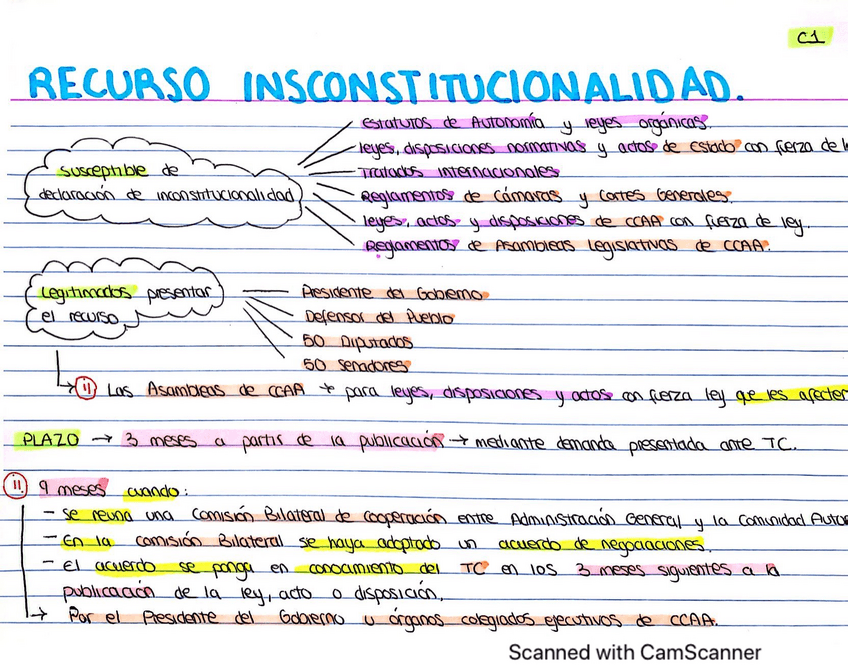 C1
RECURSO INSCONSTITUCIONALIDAD.
Estatutos de Autonomía y leyes orgánicas.
leyes, disposiciones normativas y actos de Estado con fuerza de l
Tratados internacionales
Reglamentos de Cámaras y Cortes Generales.
leyes, actos y disposiciones de CCAA con fuerza de ley.
Reglamentos de Asambleas Legislativas de CCAA.
susceptible de
declaración de inconstitucionalidad
Legitimados presentar
el recurso
Presidente del Gobierno
Defensor del Pueblo
50 Diputados
50 senadores
→ !! Las Asambleas de CCAA → para leyes, disposiciones y actos con fuerza ley que les afecten
PLAZO → 3 meses a partir de la publicación → mediante demanda presentada ante TC.
!! 9 meses cuando:
- se reuna una Comisión Bilateral de cooperación entre Administración General y la Comunidad Autó
- En la comisión Bilateral se haya adoptado un acuerdo de negociaciones.
- El acuerdo se ponga en conocimiento del TC en los 3 meses siguientes a la
publicación de la ley, acto o disposición.
→ Por el Presidente del Gobierno u órganos colegiados ejecutivos de CCAA.
Scanned with CamScanner